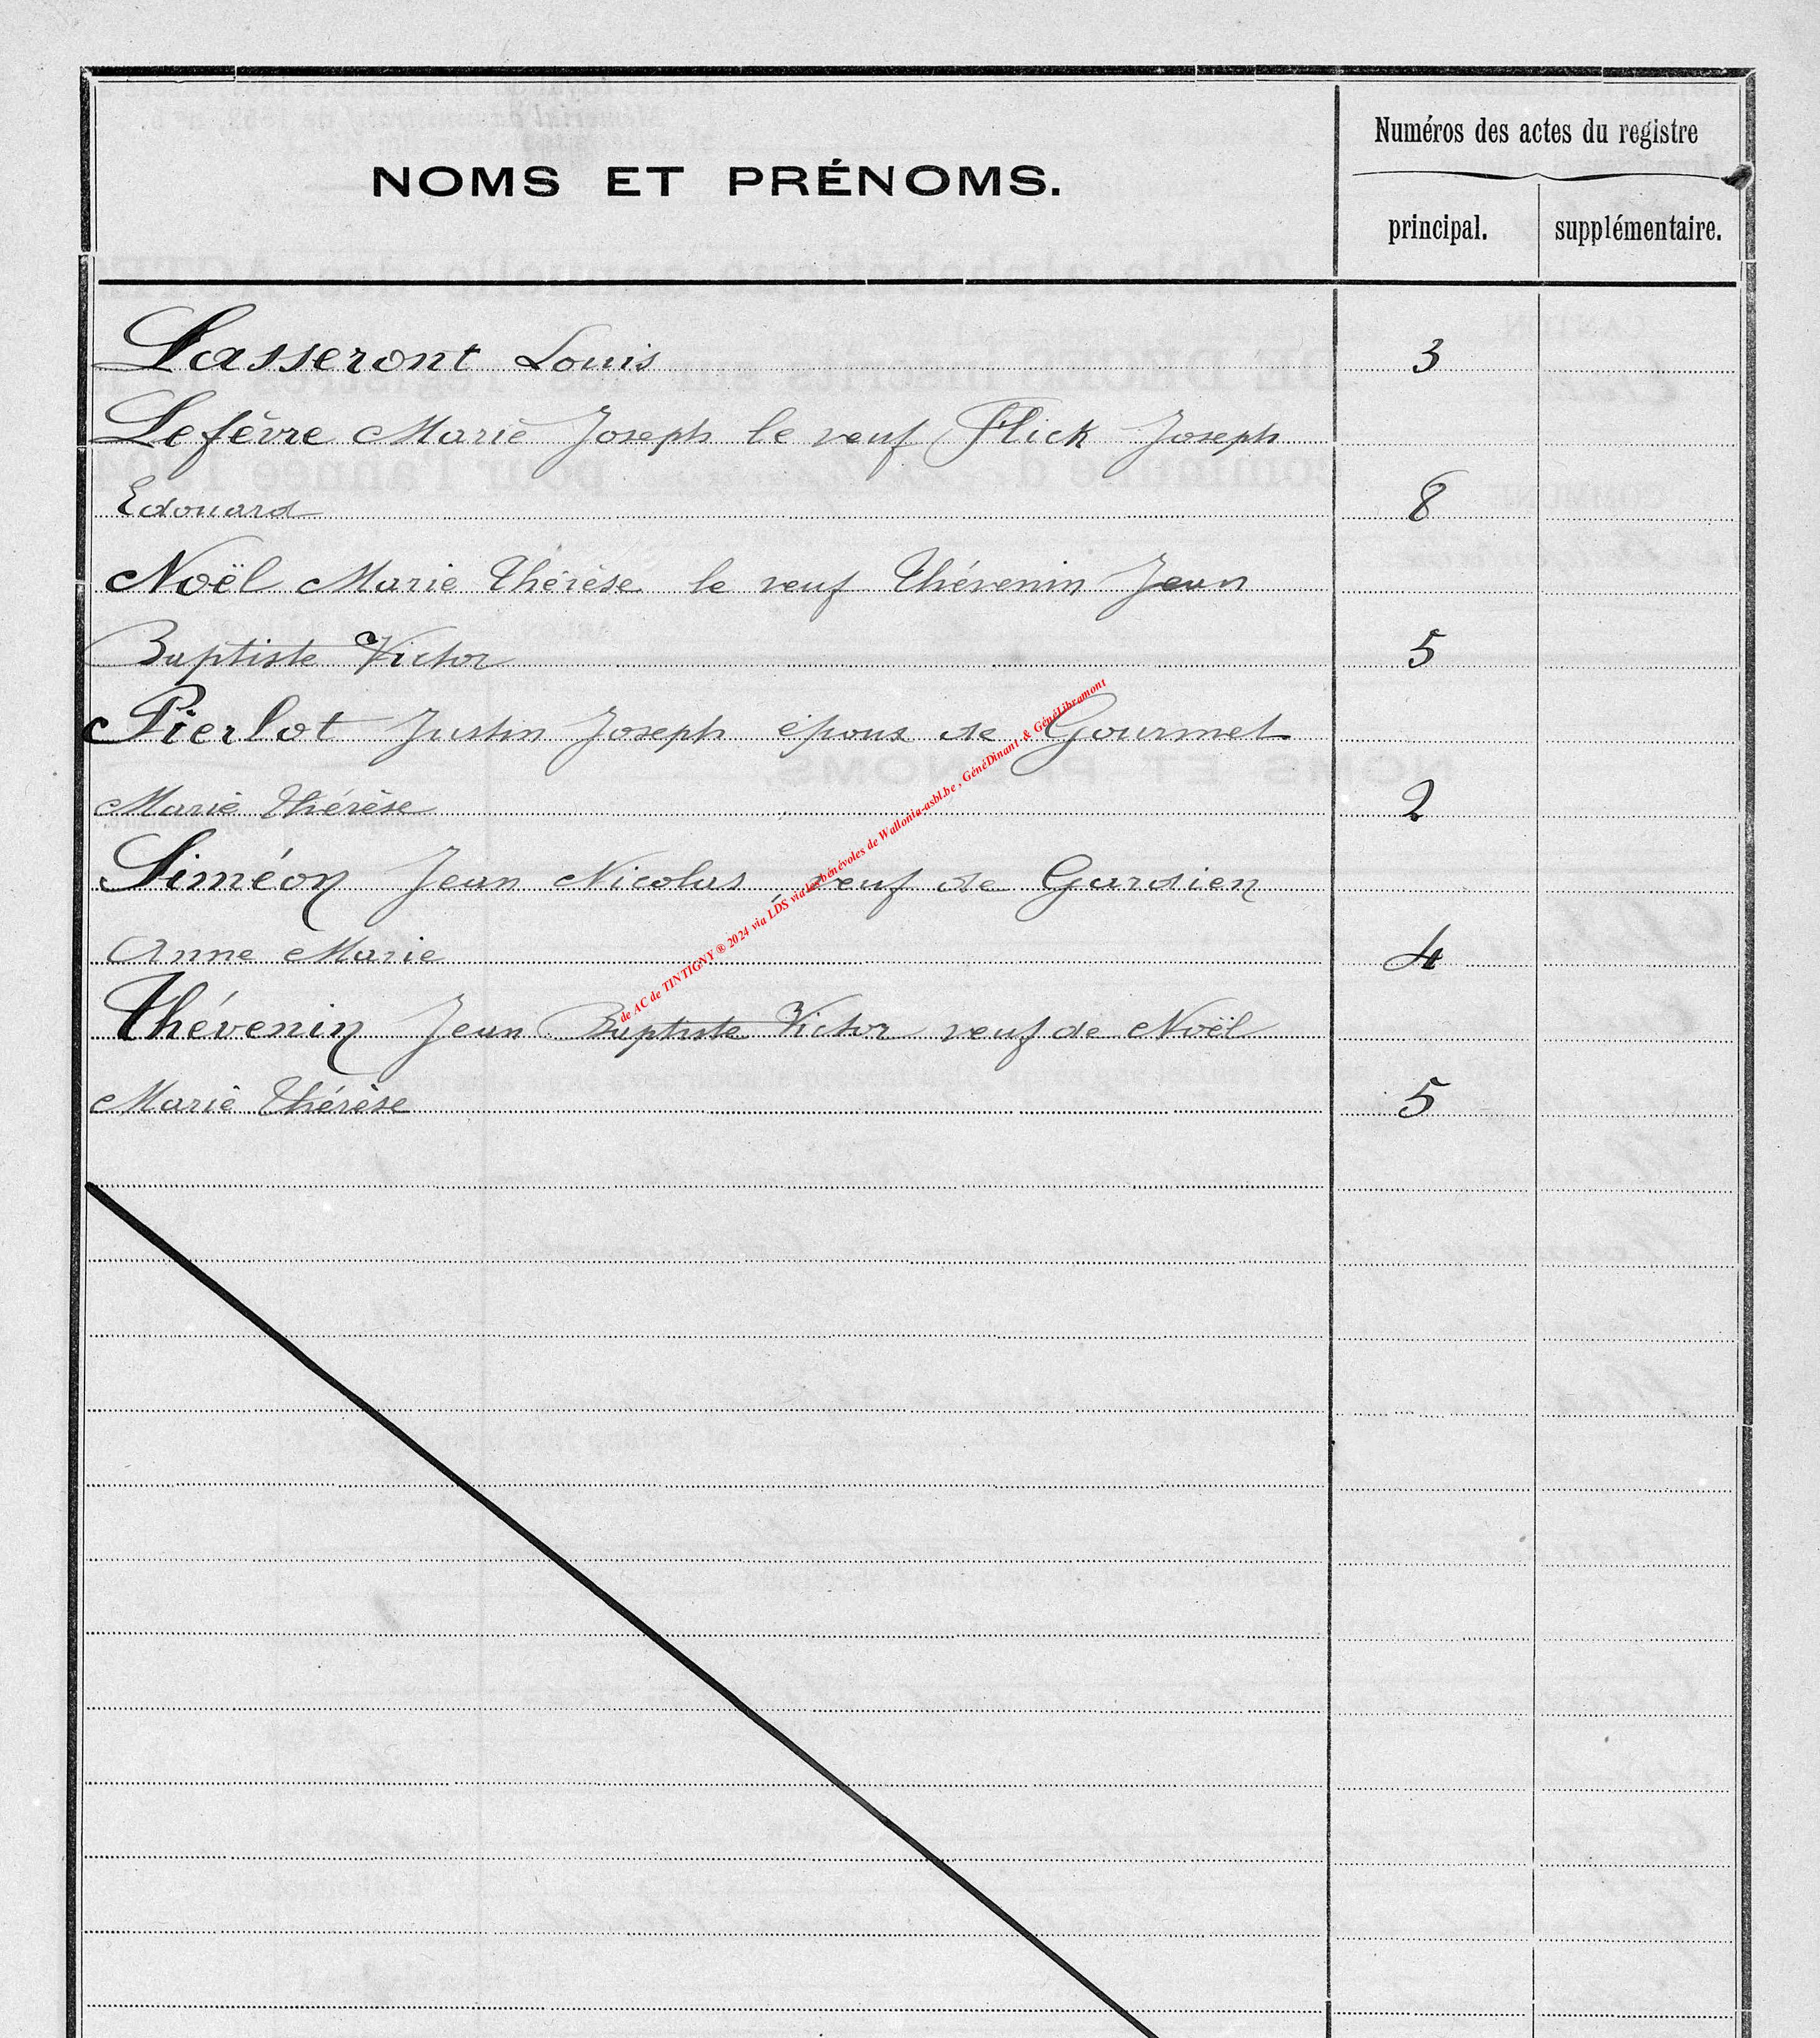 NOMS ET PRÉNOMS.
Numéros des actes du registre
principal.
supplémentaire.
Lasseront Louis 3
Lefèvre Marie Joseph le veuf Flick Joseph
Edouard 8
Noël Marie Thérèse le veuf Thévenin Jean
Baptiste Victor 5
Pierlot Justin Joseph époux de Gourmet
Marie Thérèse 2
Siméon Jean Nicolas, veuf de Gardien
Anne Marie 4
Thévenin Jean Baptiste Victor veuf de Noël
Marie Thérèse 5
de AC de TINTIGNY ® 2024 via LDS via les bénévoles de Wallonia-asbl.be, GénéDinant & GénéLibramont